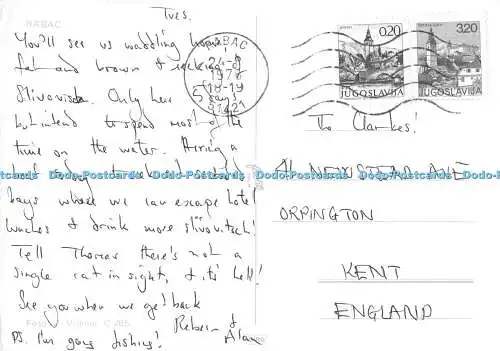 RABAC
Tues.
You'll see us waddling home,
fat and brown &
Slivovich. Only here
but intend to spend most of the
time on the water. Hiring a
boat today to
bays where we can escape hotel
lunches & drink more slivovitch!
Tell Thomas there's not a
single cat in sight, & it's hell!
See you when we get back
Foto
PS. I'm going fishing!
Alan
RABAC
24-8
1976
18-19
51221
0.20
JUGOSLAVIJA
3.20
JUGOSLAVIJA
To Clarkes!
41 NEWSTEAD AVE
ORPINGTON
KENT
ENGLAND
Dodo-Postcards Dodo-Postcards Dodo-Postcards Dodo-Postcards Dodo-Postcards